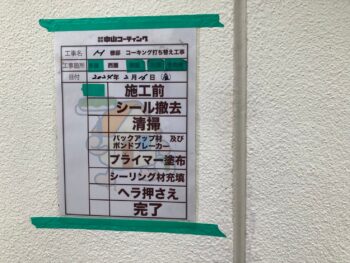 中山コーティング
工事名 邸 コーキング打ち替え工事
工事箇所 西面
日付 2024年2月 日
施工前
シール撤去
清掃
バックアップ材 及び
ボンドブレーカー
プライマー塗布
シーリング材充填
ヘラ押さえ
完了